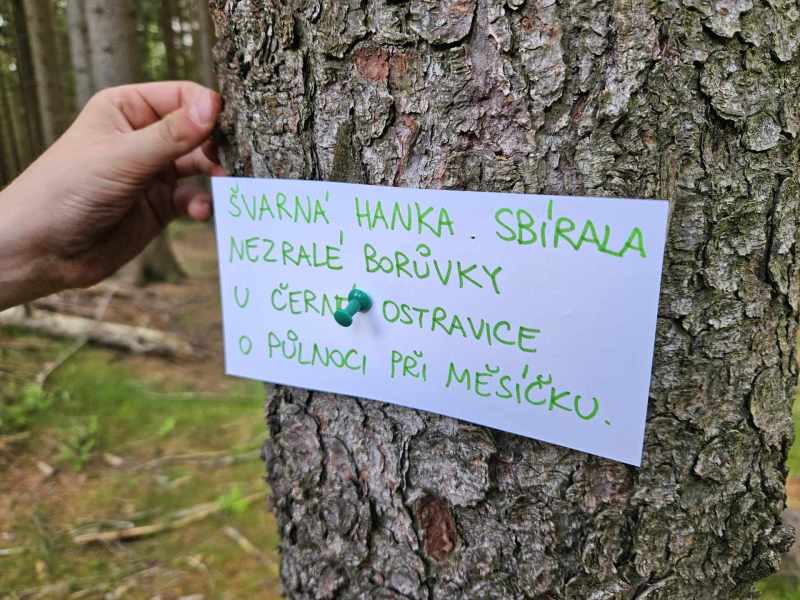 ŠVARNÁ HANKA. SBÍRALA
NEZRALÉ BORŮVKY
U ČERNÉ OSTRAVICE
O PŮLNOCI PŘI MĚSÍČKU.